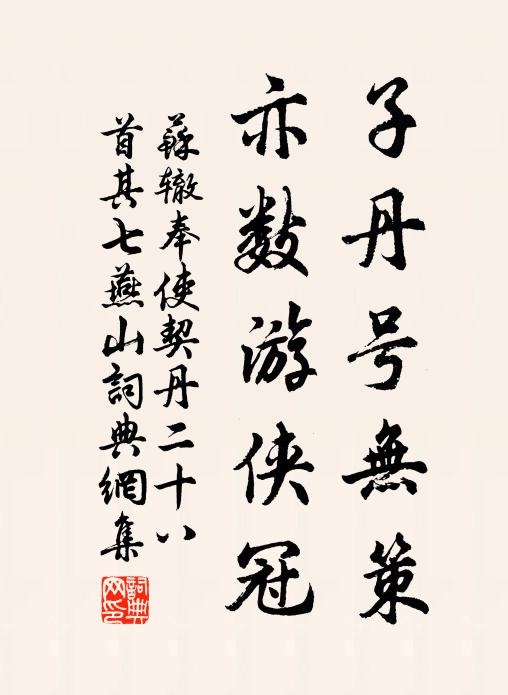 子丹号無策
亦数游俠冠
蘇辙奉使契丹二十八
首其七燕山詞典網集
詞典
网印